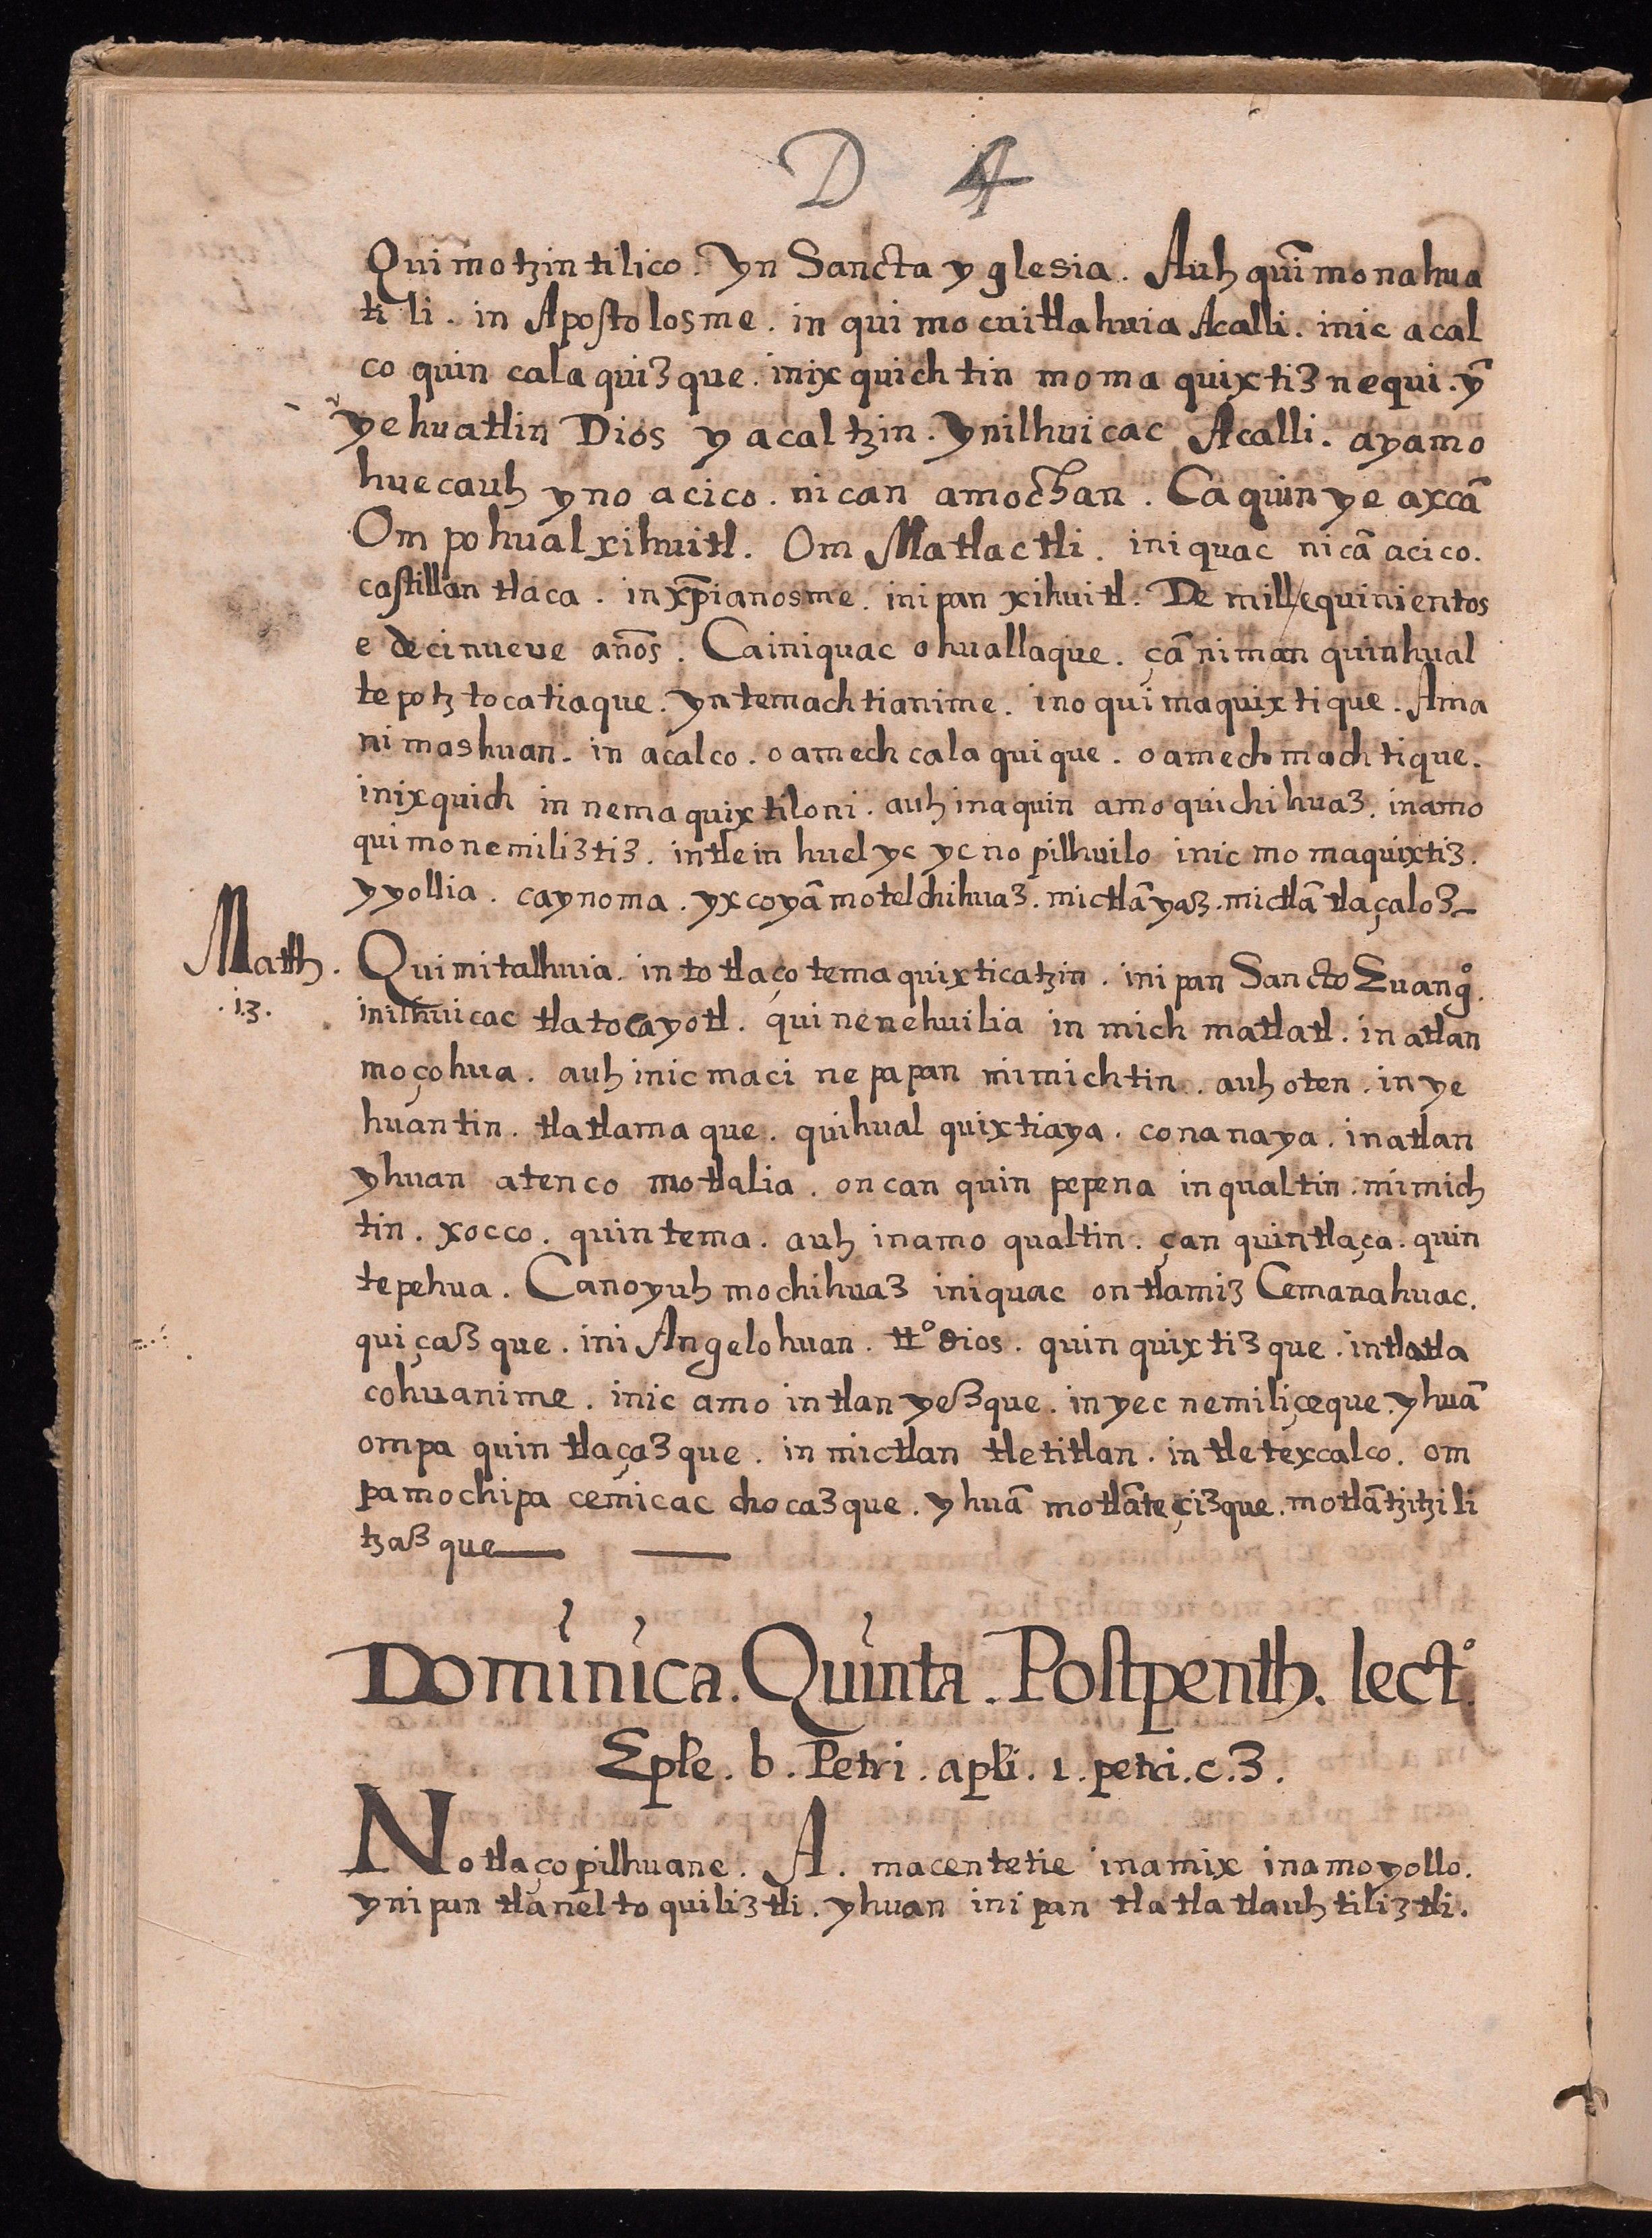 D 4
Quimotzintilico. Yn Sancta yglesia. Auh quĩmonahua
tili. in Apostolosme. in quimocuitlahuia Acalli. inic acal
co quin calaquizque. inixquichtin momaquixtiznequi. ỹ
yehuatlin Dios yacaltzin. Ynilhuicac Acalli. ayamo
huecauh yno acico. nican amochan. Ca quin ye axcã
Ompohualxihuitl. Om Matlactli. iniquac nicã acico.
castillan tlaca. in xp̃ianosme. inipan xihuitl. De mill/equinientos
e decinueve años. Cainiquac ohuallaque. çã niman quinhual
tepotztocatiaque. yntemachtianime. ino quimaquixtique. Ama
nimashuan. in acalco. oamechcalaquique. oamechmachtique.
inixquich in nemaquixtiloni. auh inaquin amo quichihuaz. inamo
quimonemiliztiz. intlein huel yc ycnopilhuilo inic momaquixtiz.
yyollia. caynoma. yxcoyã motelchihuaz. mictlã yaz. mictlã tlaçaloz
Math. Quimitalhuia. intotlaçotemaquixticatzin. inipan Sancto Euangº.
.13. inilhuicac tlatocayotl. quinenehuilia in michmatlatl. in atlan
moçohua. auh inic maci nepapan mimichtin. auh oten. in ye
huantin. tlatlamaque. quihualquixtiaya. conanaya. inatlan
yhuan atenco motlalia. oncan quinpepena inqualtin. mimich
tin. xocco. quintema. auh inamo qualtin. çan quintlaça. quin
tepehua. Canoyuh mochihuaz iniquac ontlamiz Cemanahuac.
quiçazque. ini Angelohuan. ttº dios. quinquixtizque. intlatla
cohuanime. inic amo intlan yezque. inyecnemiliçeque. yhuã
ompa quintlaçazque. in mictlan tletitlan. in tletexcalco. om
pa mochipa cemicac chocazque. yhuã motlãteçizque. motlãtzitzili
tzazque
Dominica. Quinta. Postpenth. lectº.
Eple. b. Petri. apli. 1. petri. c. 3.
Notlaçopilhuane. A. macentetie inamix inamoyollo.
ynipan tlaneltoquiliztli. yhuan inipan tlatlatlauhtiliztli.